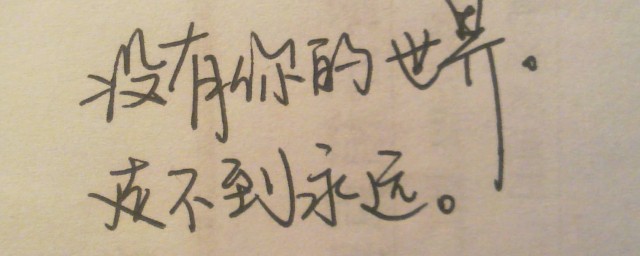 没有你的世界。
不到永远。